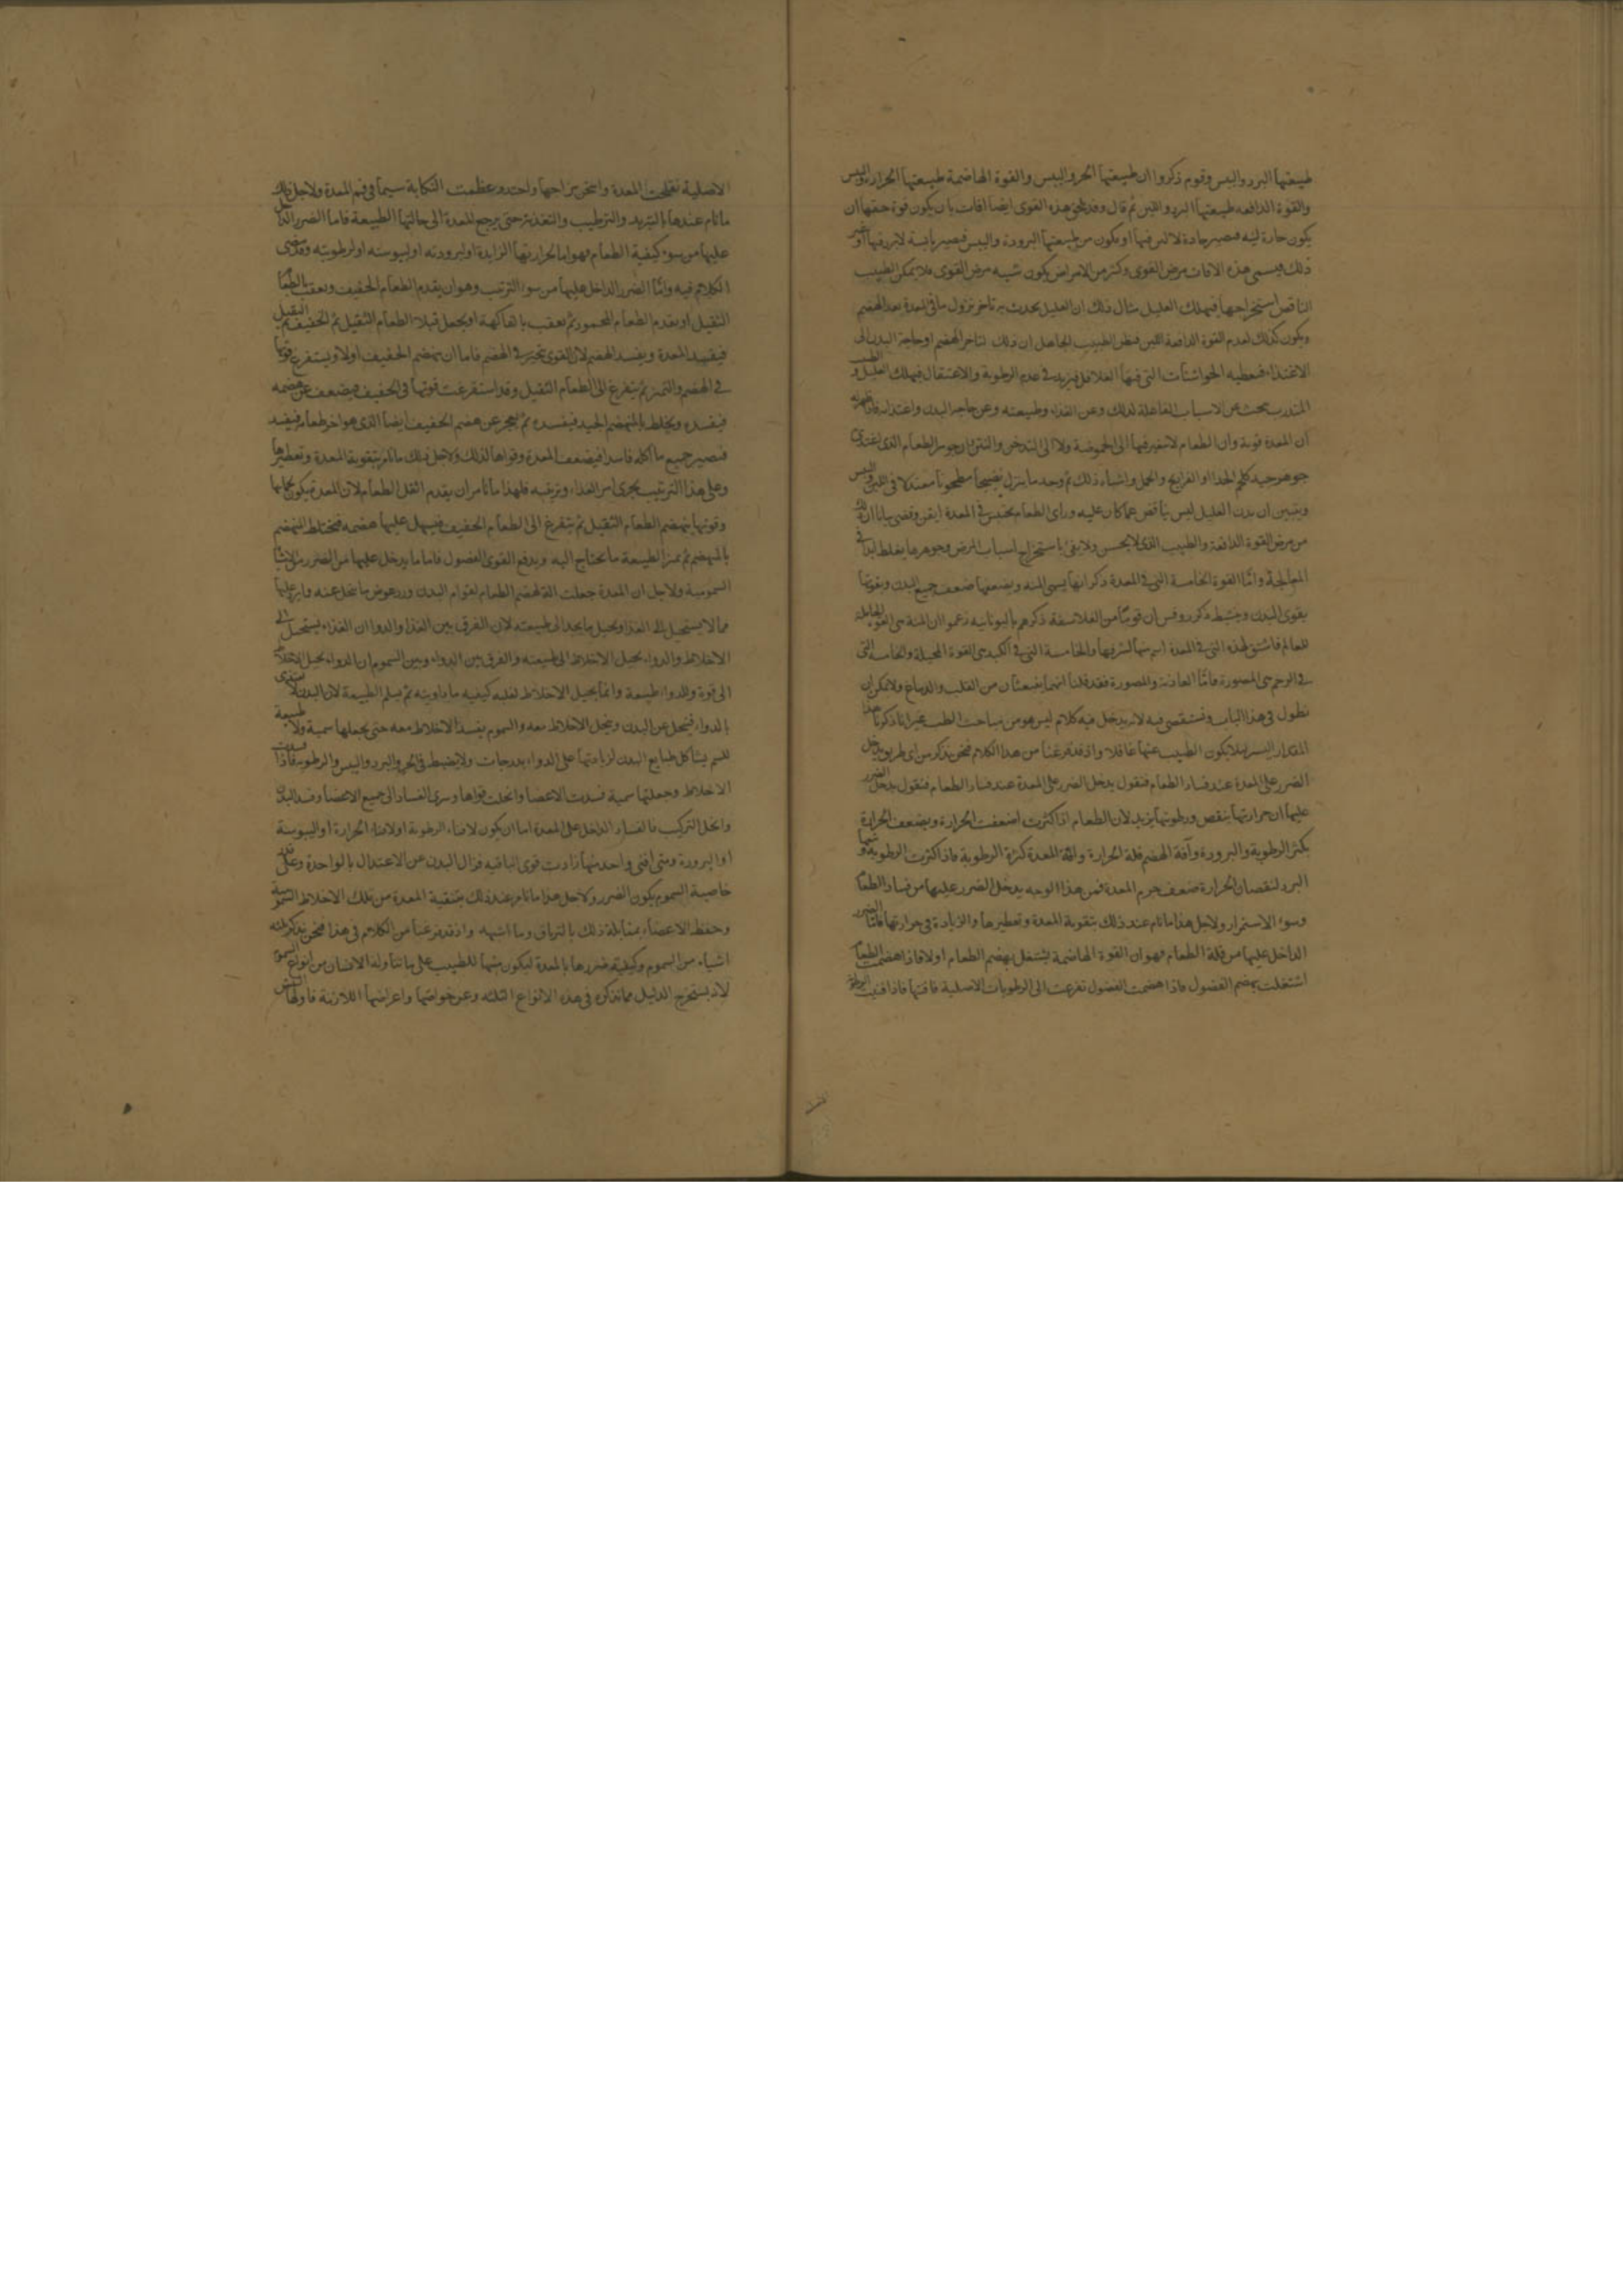 طبيعتها البرد واليبس وقوم ذكروا ان طبيعتها الحر واليبس والقوة الهاضمة طبيعتها الحرارة واليبس
والقوة الدافعه طبيعتها البرد واللين ثم قال وقد يلحق هذه القوى ايضا افات بان يكون قوة حقها ان
يكون حارة لينه فيصير حادة لا لين فيها او يكون من طبيعتها البرودة واليبس فيصير يابسة لا برد فيها او غير
ذلك فيسمى هذه الافات مرض القوى وكثير من الامراض يكون شبيه مرض القوى فلا يمكن الطبيب
الناقص استخراجها فيهلك العليل مثال ذلك ان العليل يحدث به تاخر نزول ما في المعدة بعد الهضم
ويكون كذلك لعدم القوة الدافعة اللين فيظن الطبيب الجاهل ان ذلك لتاخر الهضم او حاجة البدن الى
الاغتذاء فيعطيه الجوارشنات التي فيها الفلافل فيزيد في عدم الرطوبة والاعتقال فيهلك العليل والطبيب
المتدرب يبحث عن الاسباب الفاعلة لذلك وعن الغذاء وطبيعته وعن حاجة البدن واغتذائه فاذا ظهر له
ان المعدة قوية وان الطعام لا يتغير فيها الى الحموضة ولا الى التدخن والنتن وجوهر الطعام الذي يغتذى
جوهر جيد كلحم الجدا والفراريج والحمل واشباه ذلك ثم وجد ما ينزل نضيجا مطحونا معتدلا في اللين واليبس
ويتبين ان بدن العليل ليس بناقص عما كان عليه وراى الطعام يحتبس في المعدة ايقن وقضى بانا ان ذلك
من مرض القوة الدافعة والطبيب الذي لا يحسن ولا يفي باستخراج اسباب المرض وجوهرها يغلط ابدا في
المعالجة واما القوة الخامسة التي في المعدة ذكر انها يسمى المنه وبضعفها ضعف جميع البدن وبقوتها
يقوى البدن وينشط ذكر روفس ان قوما من الفلاسفة ذكرهم باليونانيه زعموا ان المنة هي القوة الحاملة
للعالم فاشتق لهذه التي في المعدة اسم منها لشرفها والخامسة التي في الكبد هي القوة المحيلة والخامسة التي
في الرحم هي المصورة فاما الغاذية والمصورة فقد قلنا انهما ينبعثان من القلب والدماغ ولا يمكن ان
نطول في هذا الباب ونستقصي فيه لانه يدخل فيه كلام ليس هو من مباحث الطب غير انا ذكرنا هذا
المقدار اليسير لئلا يكون الطبيب عنها غافلا واذ قد فرغنا من هذا الكلام فنحن نذكر من اى طريق يدخل
الضرر على المعدة عند فساد الطعام فنقول يدخل الضرر على المعدة عند فساد الطعام فنقول يدخل الضرر
عليها ان حرارتها ينقص ورطوبتها يزيد لان الطعام اذا كثرت اضعفت الحرارة وبضعف الحرارة
يكثر الرطوبة والبرودة وآفة الهضم قلة الحرارة وافة المعدة كثرة الرطوبة فاذا كثرت الرطوبة فيها و
البرد لنقصان الحرارة ضعف جرم المعدة فمن هذا الوجه يدخل الضرر عليها من فساد الطعام
وسوء الاستمراء ولاجل هذا ما نامر عند ذلك بتقوية المعدة وتعطيرها والزيادة في حرارتها فاما الضرر
الداخل عليها من قلة الطعام فهو ان القوة الهاضمة يشتغل بهضم الطعام اولا فاذا هضمت الطعام
اشتغلت بهضم الفضول فاذا هضمت الفضول تفرغت الى الرطوبات الاصلية فافنتها فاذا افنيت الرطوبة
الاصلية المعدة واسخن مزاجها واحتد وعظمت النكاية سيما في فم المعدة ولاجل ذلك
ما نامر عندها بالتبريد والترطيب والتغذية حتى يرجع المعدة الى حالتها الطبيعة فاما الضرر الداخل
عليها من سوء كيفية الطعام فهو اما لحرارتها الزايدة او لبرودته او ليبوسته او لرطوبته وقد مضى
الكلام فيه واما الضرر الداخل عليها من سوء الترتيب وهو ان يقدم الطعام الخفيف ويعقب بالطعام
الثقيل او يقدم الطعام المحمود ثم يعقب بالفاكهة او يجعل قبلا الطعام الثقيل ثم الخفيف ثم الثقيل
فيفسد المعدة ويفسد الهضم لان القوى يتحير في الهضم فاما ان يهضم الخفيف اولا ويستفرغ قوتها
في الهضم والتميز ثم يتفرغ الى الطعام الثقيل وقد استفرغت قوتها في الخفيف فيضعف عن هضمه
فيفسده ويخلط بالمنهضم الجيد فيفسده ثم يعجز عن هضم الخفيف ايضا الذي هو اخر طعامه فيفسد
فيصير جميع ما اكله فاسدا فيضعف المعدة وقواها لذلك ولاجل ذلك ما نامر بتقوية المعدة وتعطيرها
وعلى هذا الترتيب يجرى امر الغذاء وترتيبه فلهذا ما نامر ان يقدم اثقل الطعام لان المعدة يكون بحالها
وقوتها ينهضم الطعام الثقيل ثم يتفرغ الى الطعام الخفيف فيسهل عليها هضمه فيختلط المنهضم
بالمنهضم ثم يميز الطبيعة ما يحتاج اليه ويدفع القوى الفضول فاما ما يدخل عليها من الضرر من الاشياء
السمومية ولاجل ان المعدة جعلت الة لهضم الطعام لقوام البدن ورد عوض ما ينحل عنه وما يرد عليها
مما لا يستحيل الى الغذا ويحيل ما يجد الى طبيعته لان الفرق بين الغذا والدوا ان الغذاء يستحيل الى
الاخلاط والدواء يحيل الاخلاط الى طبيعته والفرق بين الدواء وبين السموم ان الدواء يحيل الاخلاط
الى قوة وللدواء طبيعة وانما يحيل الاخلاط لغلبه كيفيه ما داويته ثم يسلم الطبيعة لان البدن لا يغتذى
بالدواء فينحل عن البدن وينحل الاخلاط معه والسموم يفسد الاخلاط معه حتى يجعلها سمية ولا طبيعة
للسم يشاكل طبايع البدن لزيادتها على الدواء بدرجات ولا ينضبط في الحر والبرد واليبس والرطوبه فاذا فسدت
الاخلاط وجعلتها سمية فسدت الاعضا وانحلت قواها وسرى الفساد الى جميع الاعضا وفسد البدن
وانحل التركيب فالفساد الداخل على المعدة اما ان يكون لافناء الرطوبة او لافناء الحرارة او اليبوسة
او البرودة ومتى افنى واحد منها زادت قوى الباقيه فزال البدن عن الاعتدال بالواحدة وعلى قدر
خاصية السموم يكون الضرر ولاجل هذا ما نامر عند ذلك بتنقية المعدة من تلك الاخلاط السمية
وحفظ الاعضاء بمقابلة ذلك بالترياق وما اشبهه واذ قد فرغنا من الكلام في هذا فنحن نذكر ثلثه
اشياء من السموم وكيفية ضررها بالمعدة ليكون منها للطبيب على ما يتناوله الانسان من انواع السموم
لانه يستخرج الدليل مما نذكره في هذه الانواع الثلثه وعن خواصها واعراضها اللازمة فاولها البيش